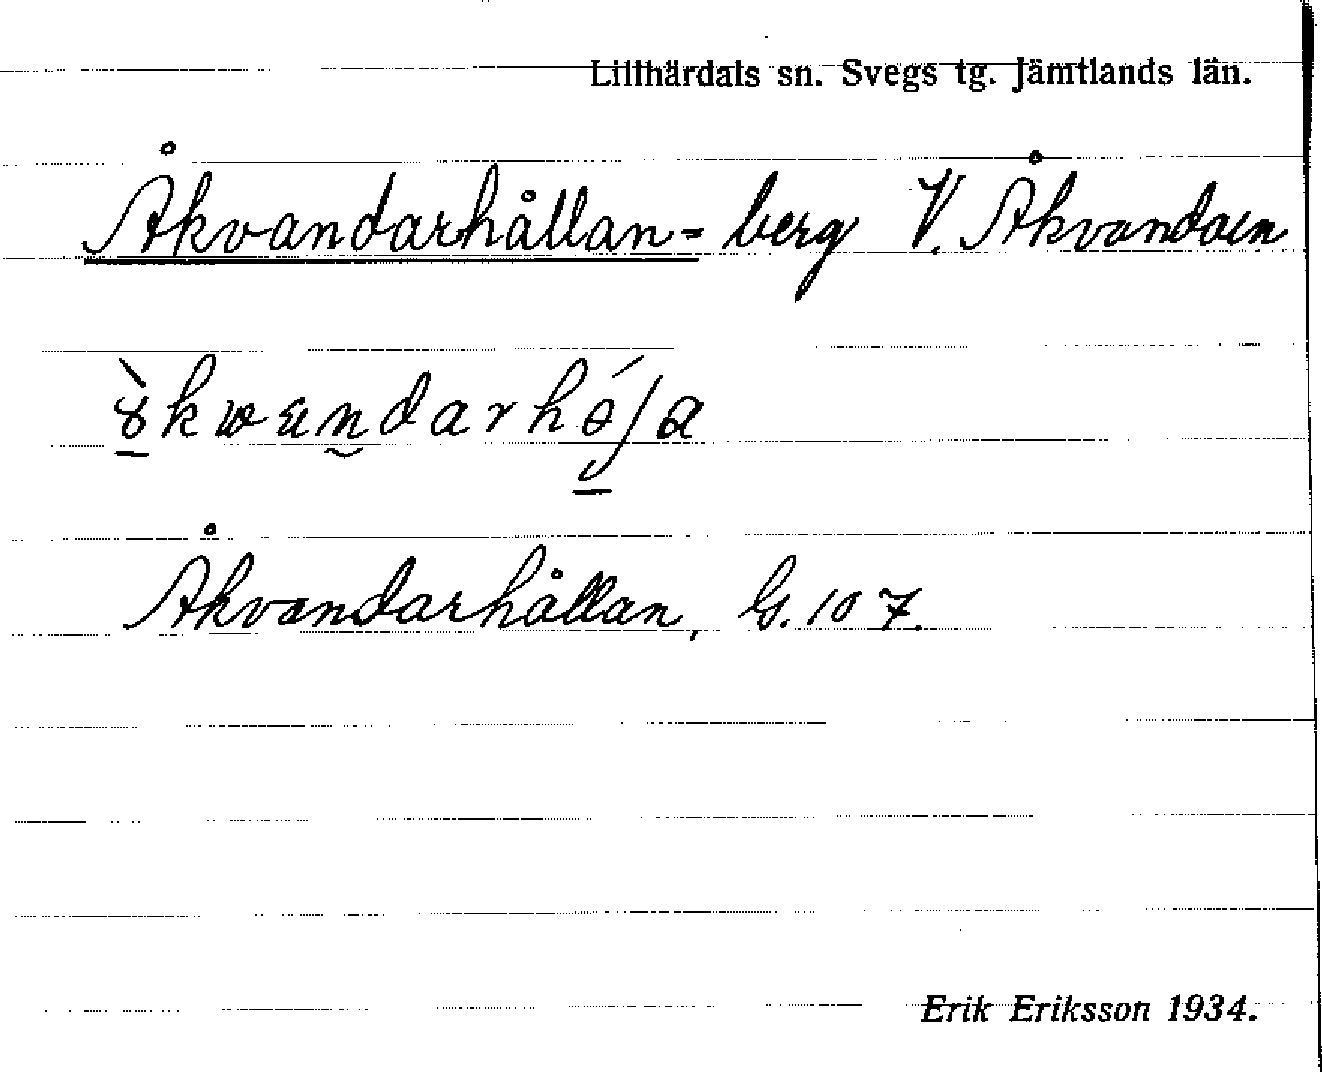 Lillhärdals sn. Svegs tg. Jämtlands län.
Åkvandarhållan - berg V. Åkvandaen
Åkvandarhållan, G. 107.
Erik Eriksson 1934.